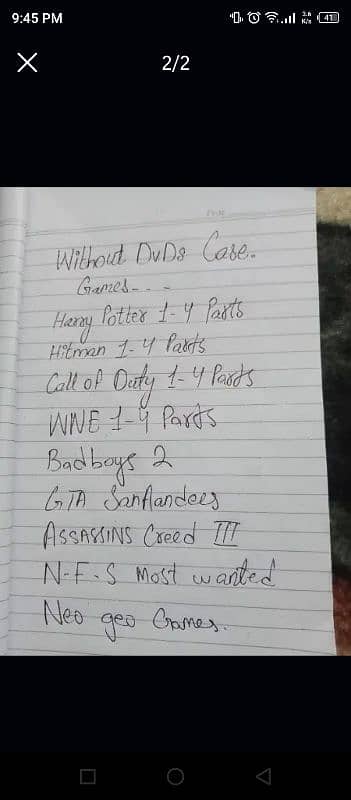 9:45 PM
3.6
K/s
41
2/2
Without DvDs Case.
Games - - -
Harry Potter 1-4 Parts
Hitman 1-4 Parts
Call of Duty 1-4 Parts
WWE 1-4 Parts
Bad boys 2
GTA SanAandees
ASSASSINS Creed III
N-F-S Most wanted
Neo geo Games.